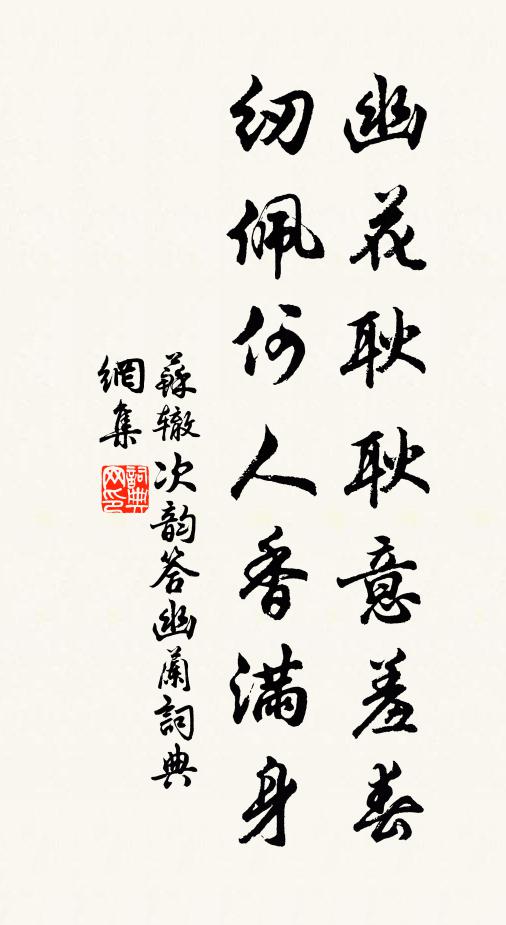 幽花耿耿意羞春
纫佩何人香满身
蘇辙次韵答幽蘭詞典
網集
詞典网印